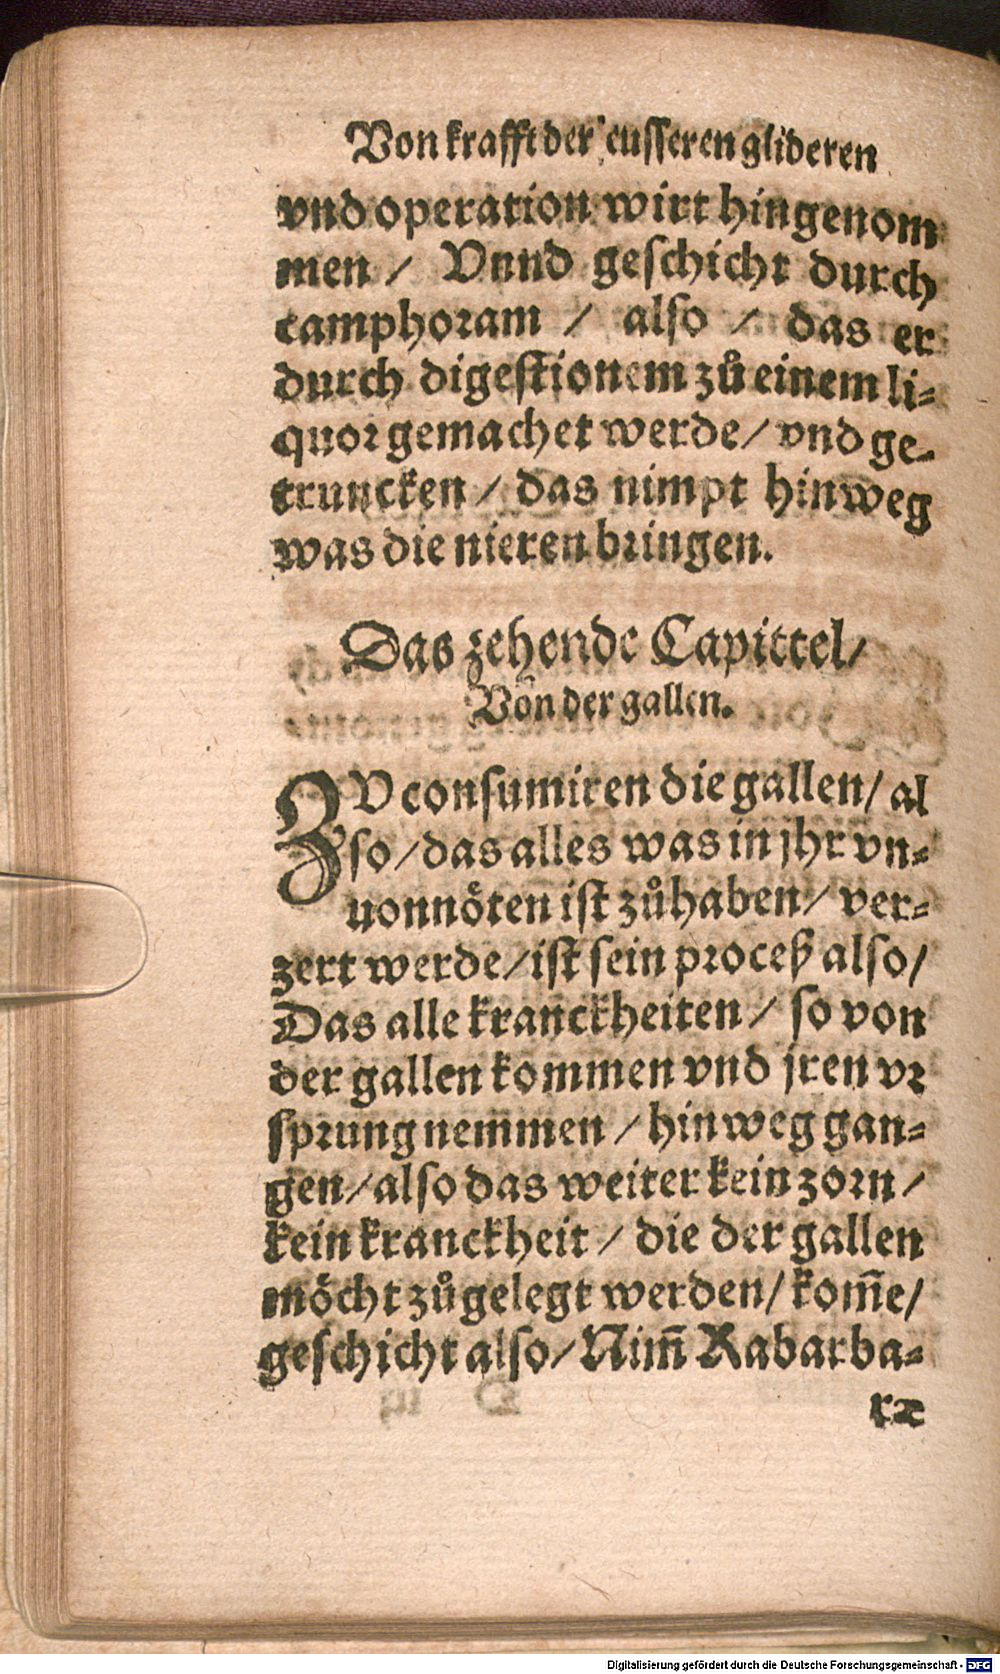 Von krafft der eusseren glideren
vnd operation wirt hingenom
men / Vnnd geschicht durch
camphoram / also / das er
durch digestionem zů einem li⸗
quor gemachet werde / vnd ge⸗
truncken / das nimpt hinweg
was die nieren bringen.
Das zehende Capittel /
Von der gallen.
ZV consumiren die gallen / al
so / das alles was in jhr vn⸗
uonnöten ist zůhaben / ver⸗
zert werde / ist sein proceß also /
Das alle kranckheiten / so von
der gallen kommen vnd jren vr
sprung nemmen / hinweg gan⸗
gen / also das weiter kein zorn /
kein kranckheit / die der gallen
möcht zůgelegt werden / kom̃e /
geschicht also / Nim̃ Rabarba⸗
ræ
Digitalisierung gefördert durch die Deutsche Forschungsgemeinschaft - DFG